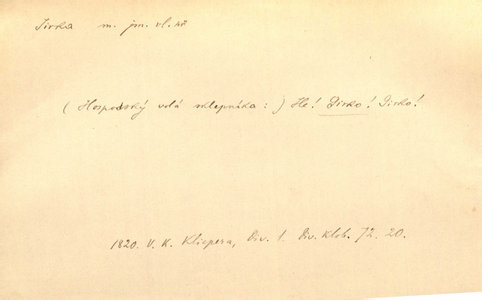 Jirka m. jm. vl.
(Hospodský volá sklepníka:) He! Jirko! Jirko!
1820. V. K. Klicpera, Div. 1. Div. Klob. 72. 20.